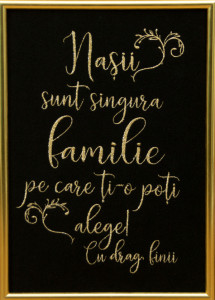 Nașii
sunt singura
familie
pe care ți-o poți
alege!
Cu drag, finii